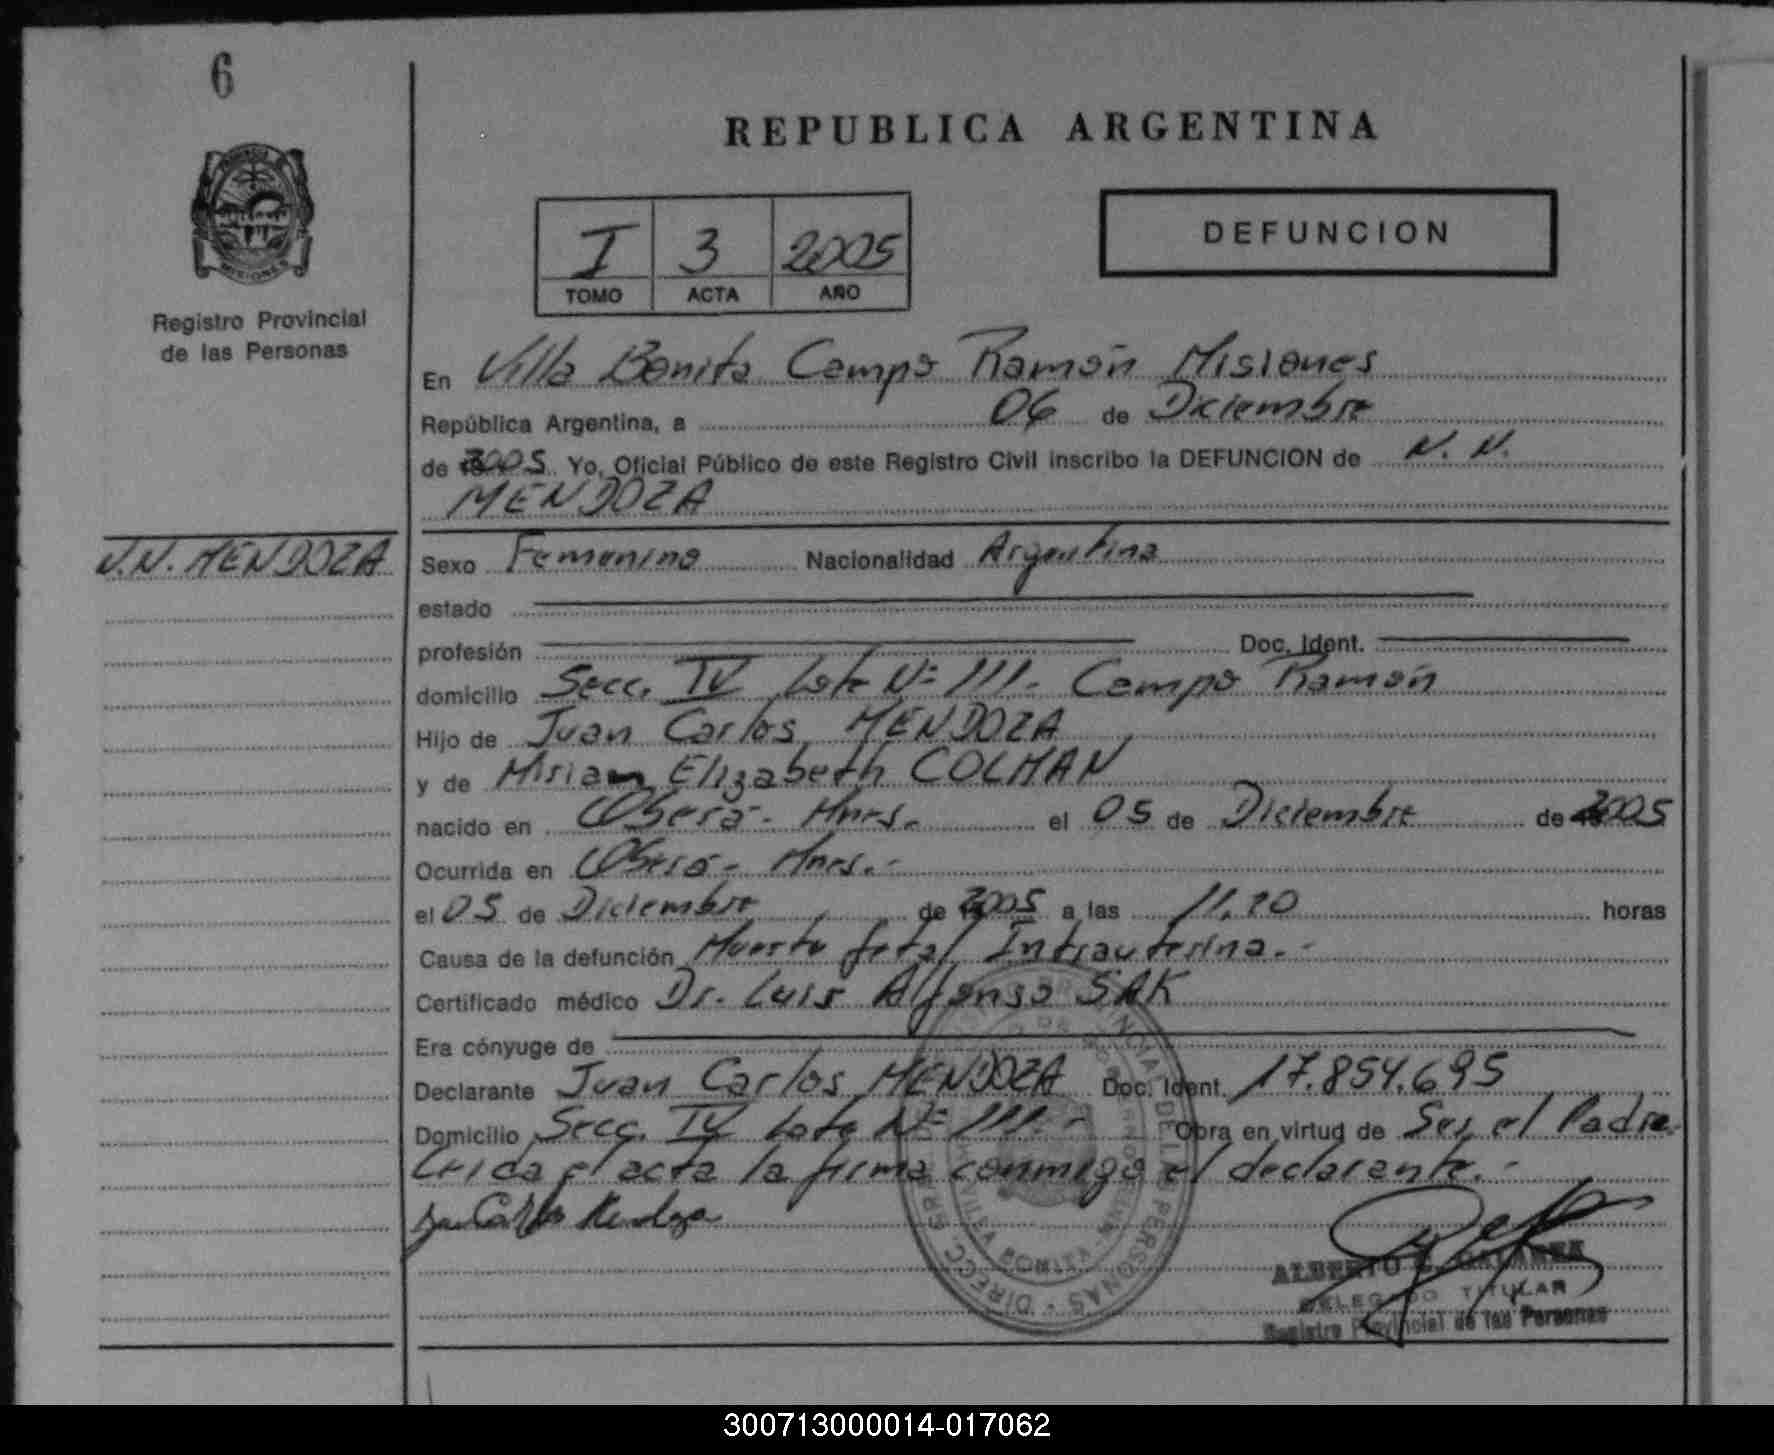 6
REPUBLICA ARGENTINA
DEFUNCION
I 3 2005
TOMO ACTA AÑO
MISIONES
Registro Provincial
de las Personas
En Villa Bonita Campo Ramón Misiones
República Argentina, a 06 de Diciembre
de 2005. Yo, Oficial Público de este Registro Civil inscribo la DEFUNCION de N. N.
MENDOZA
N.N. MENDOZA
Sexo Femenino Nacionalidad Argentina
estado
profesión Doc. Ident.
domicilio Secc. IV Lote Nº 111. Campo Ramón
Hijo de Juan Carlos MENDOZA
y de Miriam Elizabeth COLMAN
nacido en Oberá - Mnes. el 05 de Diciembre de 2005
Ocurrida en Oberá - Mnes.-
el 05 de Diciembre de 2005 a las 11,20 horas
Causa de la defunción Muerte fetal Intrauterina.-
Certificado médico Dr. Luis Alfonso SAK
Era cónyuge de
Declarante Juan Carlos MENDOZA Doc. Ident. 17.854.695
Domicilio Secc. IV Lote Nº 111.- Obra en virtud de Ser el Padre.
Leida el acta la firma conmigo el declarante.-
Juan Carlos Mendoza
ALBERTO
DELEGADO TITULAR
Registro Provincial de las Personas
300713000014-017062